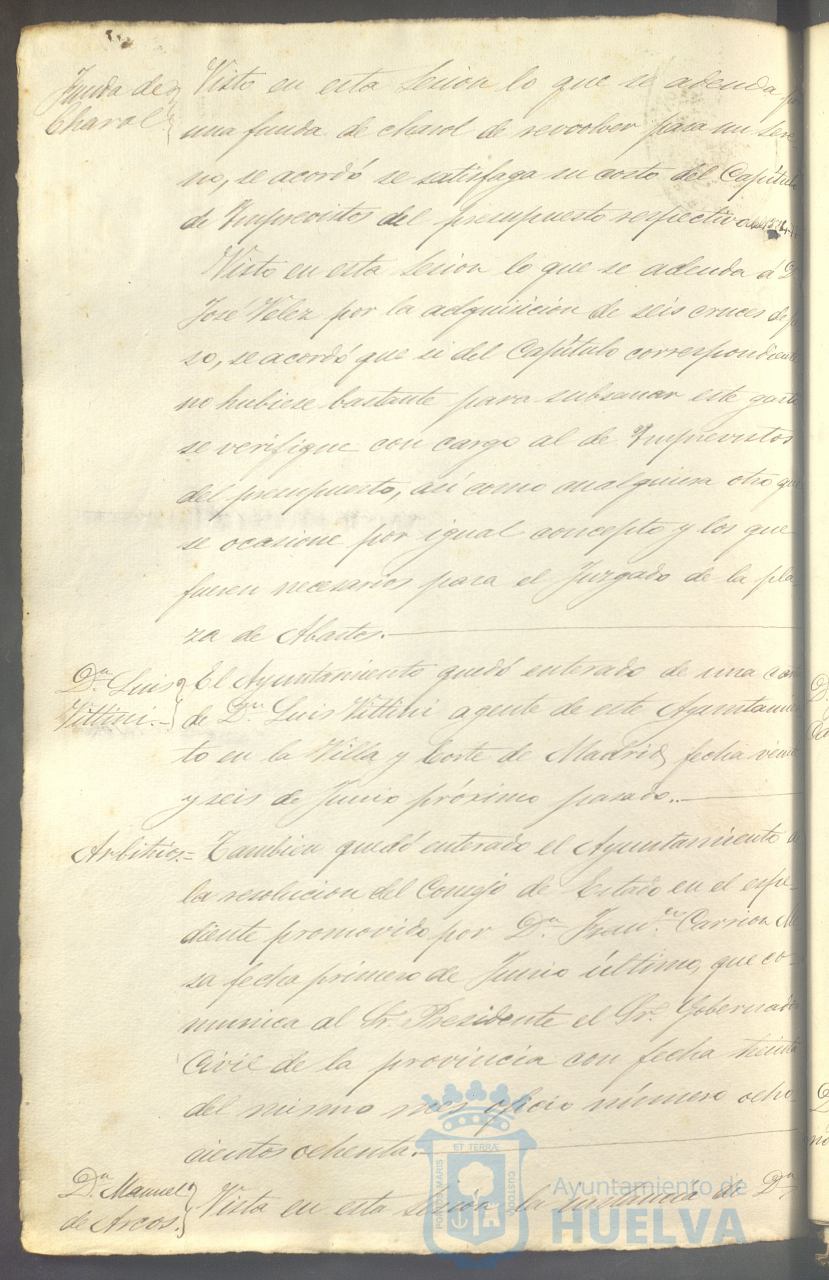 Funda de
Charol
Visto en esta Sesion lo que se adeuda
una funda de charol de revolver para un sere-
no, se acordó se satisfaga su costo del Capítulo
de Imprevistos del presupuesto respectivo
Visto en esta Sesion lo que se adeuda á D
José Velez por la adquisicion de seis cruces de
so, se acordó que si del Capítulo correspondiente
no hubiese bastante para subsanar este gasto
se verifique con cargo al de Imprevistos
del presupuesto, asi como cualquiera otro que
se ocasione por igual concepto y los que
fuesen necesarios para el Juzgado de la pla
za de Abastos.
Dn. Luis
Vittini.
El Ayuntamiento quedó enterado de una
de Dn. Luis Vittini agente de este Ayuntamien
to en la Villa y Corte de Madrid, fecha veinte
y seis de Junio próximo pasado.
Arbitrios=
Tambien quedó enterado el Ayuntamiento de
la resolucion del Consejo de Estado en el espe-
diente promovido por Dn. Franco. Carrion Me
sa fecha primero de Junio último, que co-
munica al Sr. Presidente el Sr. Gobernador
Civil de la provincia con fecha treinta
del mismo mes oficio número ocho-
cientos ochenta.
Dn. Manuel
de Arcos.
Vista en esta Sesion la instancia de Dn
PORTUS MARIS
ET TERRÆ
CUSTODIA
Ayuntamiento de
HUELVA